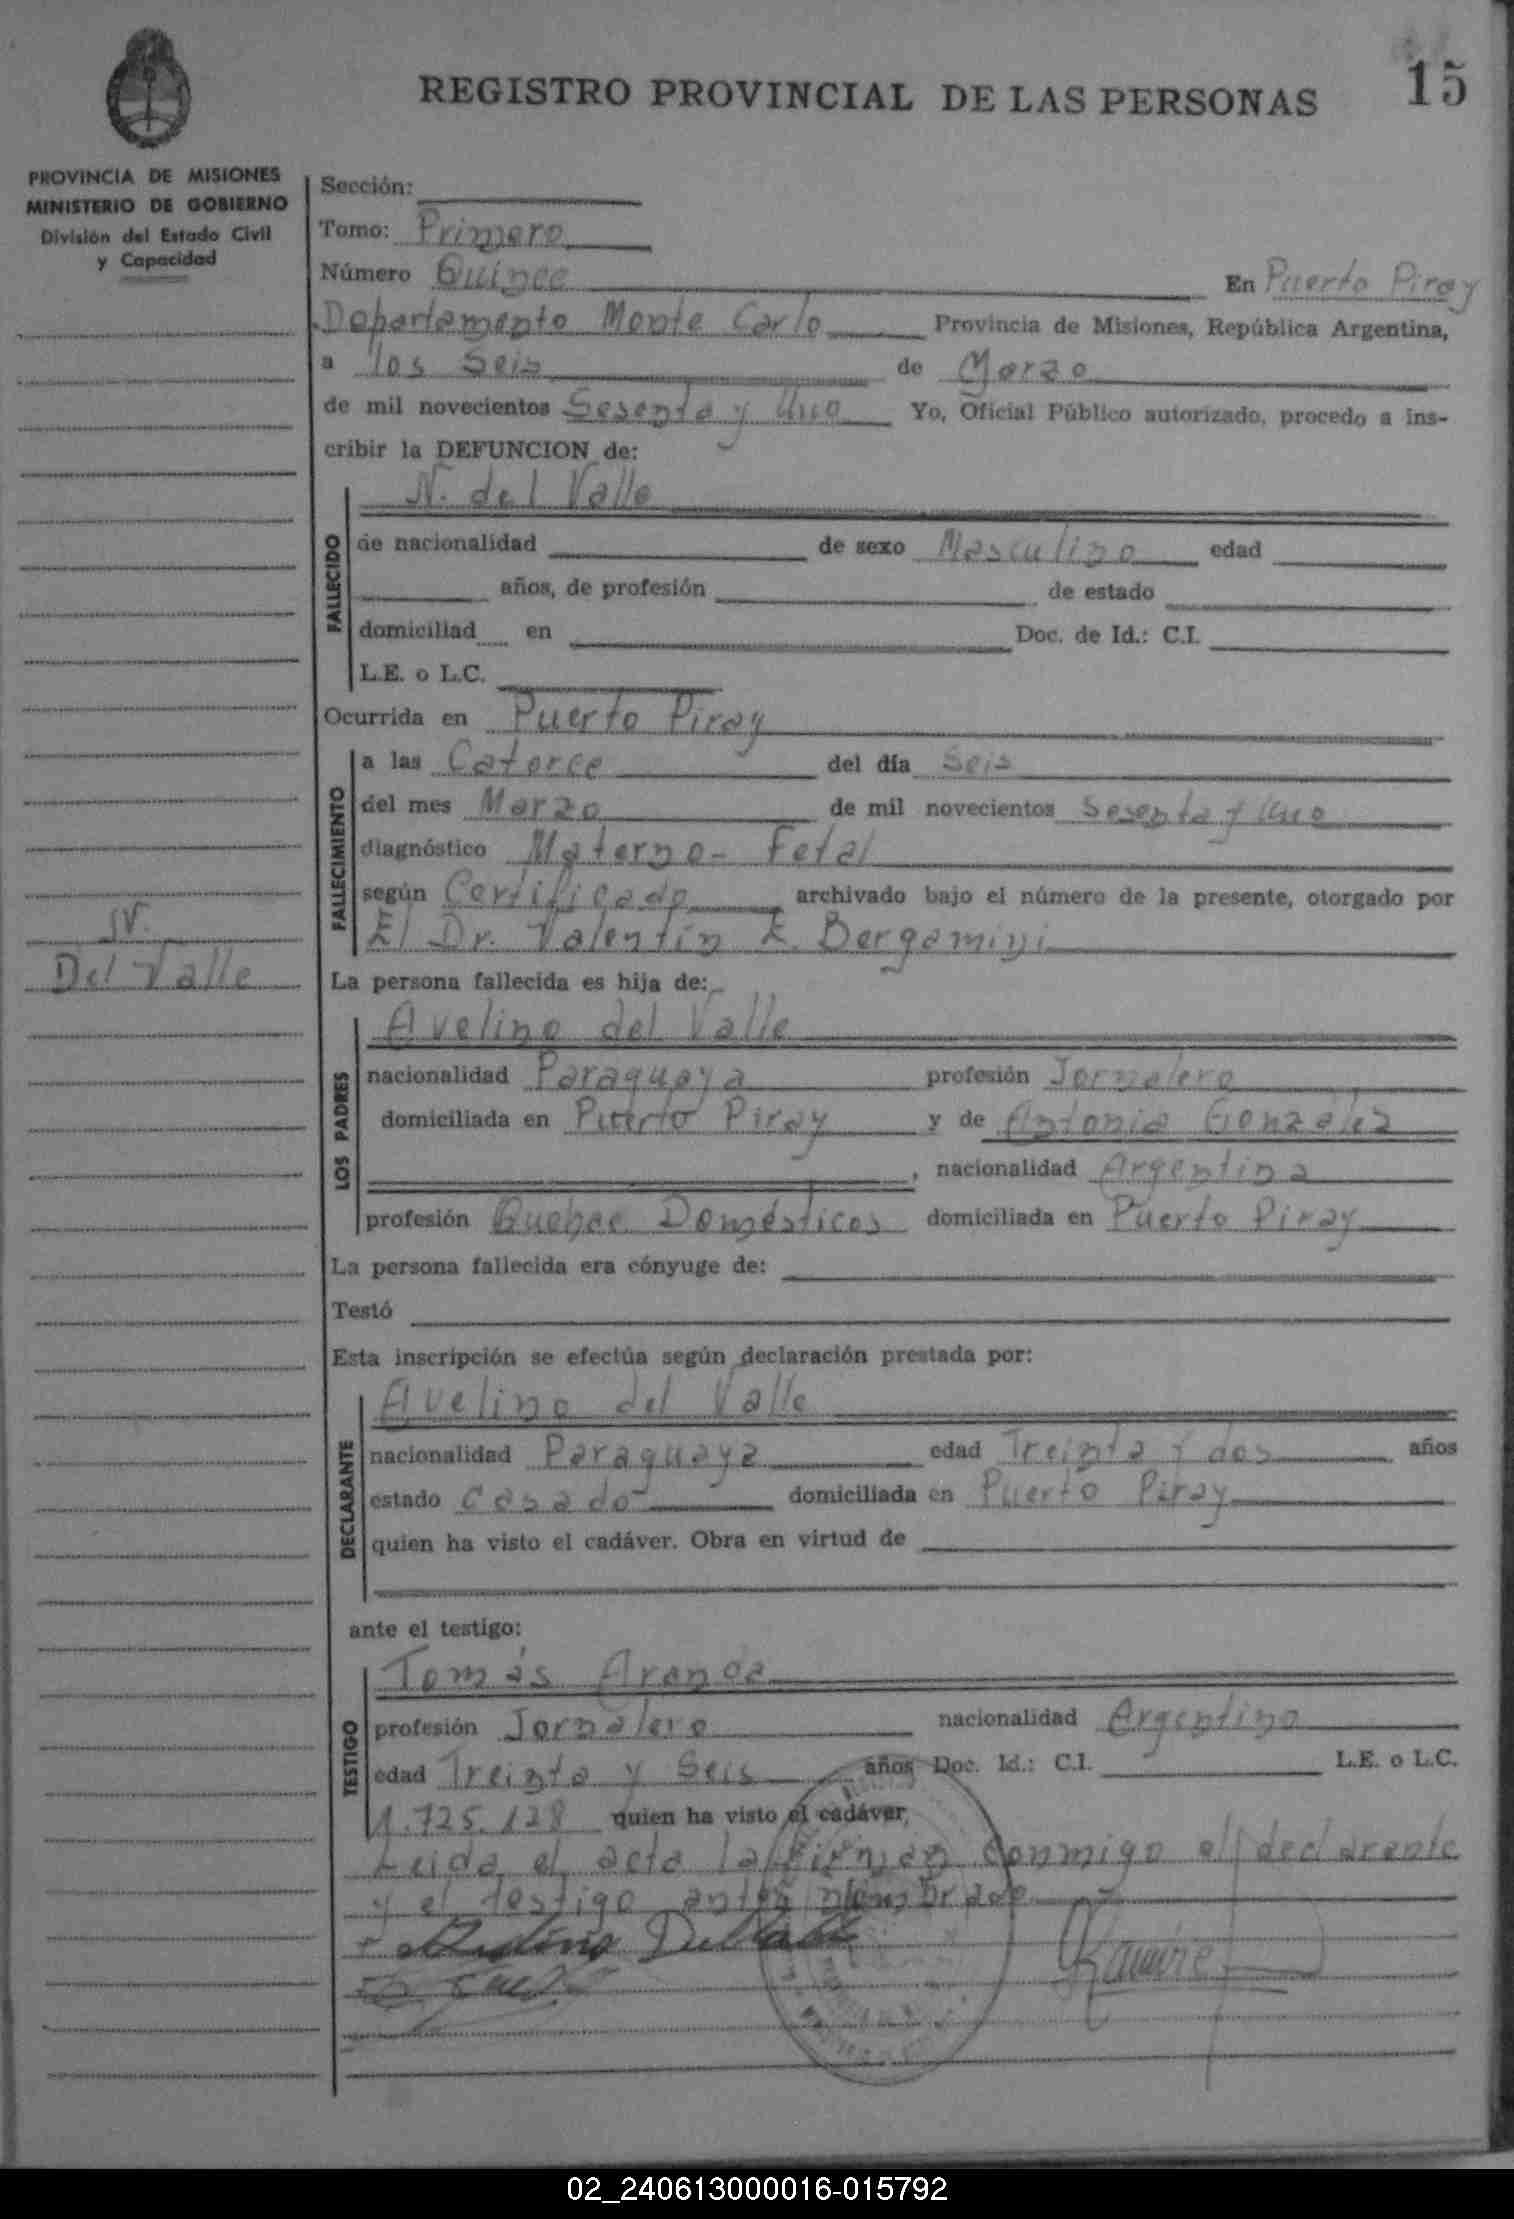 REGISTRO PROVINCIAL DE LAS PERSONAS
15
PROVINCIA DE MISIONES
MINISTERIO DE GOBIERNO
División del Estado Civil
y Capacidad
N.
Del Valle
Sección:
Tomo: Primero
Número Quince En Puerto Piray
Departamento Monte Carlo Provincia de Misiones, República Argentina,
a los Seis de Marzo
de mil novecientos Sesenta y Uno Yo, Oficial Público autorizado, procedo a ins-
cribir la DEFUNCION de:
FALLECIDO
N. del Valle
de nacionalidad de sexo Masculino edad
años, de profesión de estado
domiciliad en Doc. de Id.: C.I.
L.E. o L.C.
Ocurrida en Puerto Piray
FALLECIMIENTO
a las Catorce del día Seis
del mes Marzo de mil novecientos Sesenta y Uno
diagnóstico Materno - Fetal
según Certificado archivado bajo el número de la presente, otorgado por
El Dr. Valentín E. Bergamini
La persona fallecida es hija de:
LOS PADRES
Avelino del Valle
nacionalidad Paraguaya profesión Jornalero
domiciliada en Puerto Piray y de Antonia González
, nacionalidad Argentina
profesión Quehac. Domésticos domiciliada en Puerto Piray
La persona fallecida era cónyuge de:
Testó
Esta inscripción se efectúa según declaración prestada por:
DECLARANTE
Avelino del Valle
nacionalidad Paraguaya edad Treinta y dos años
estado Casado domiciliada en Puerto Piray
quien ha visto el cadáver. Obra en virtud de
ante el testigo:
TESTIGO
Tomás Aranda
profesión Jornalero nacionalidad Argentino
edad Treinta y Seis años Doc. Id.: C.I. L.E. o L.C.
1.725.128 quien ha visto el cadáver,
Leida el acta la firman conmigo el declarante
y el testigo antes nombrado
Avelino Delvalle
Ramire
02_240613000016-015792